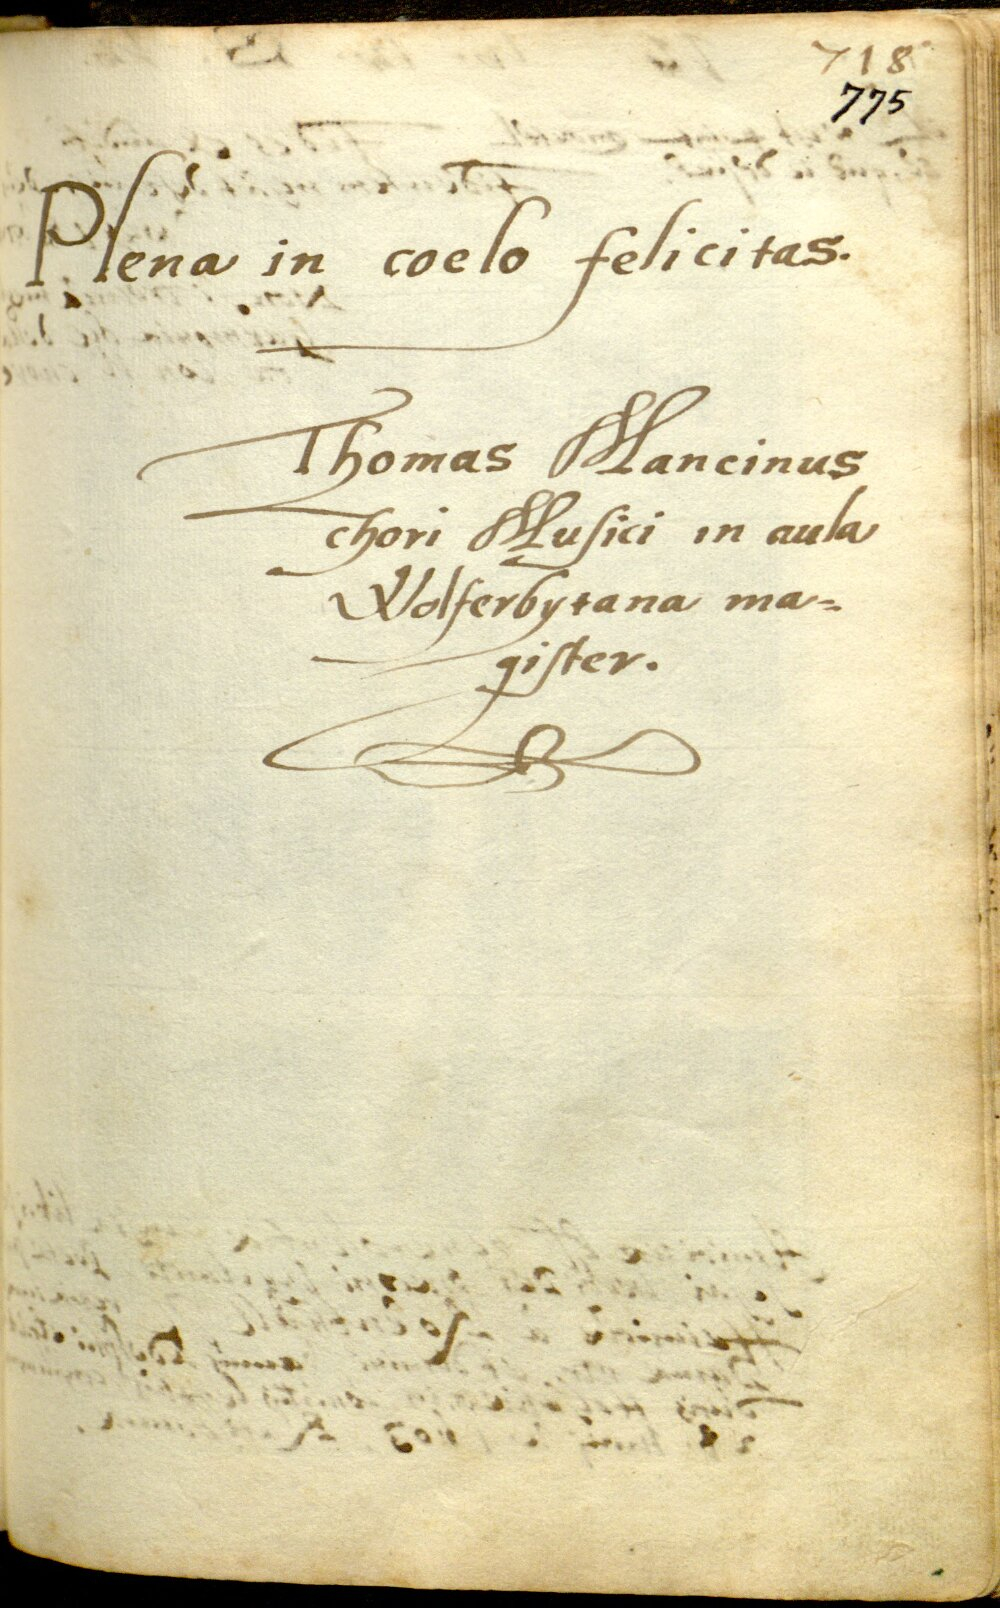 718
775
Plena in coelo felicitas.
Thomas Mancinus
chori Musici in aula
Wolferbytana ma=
gister.